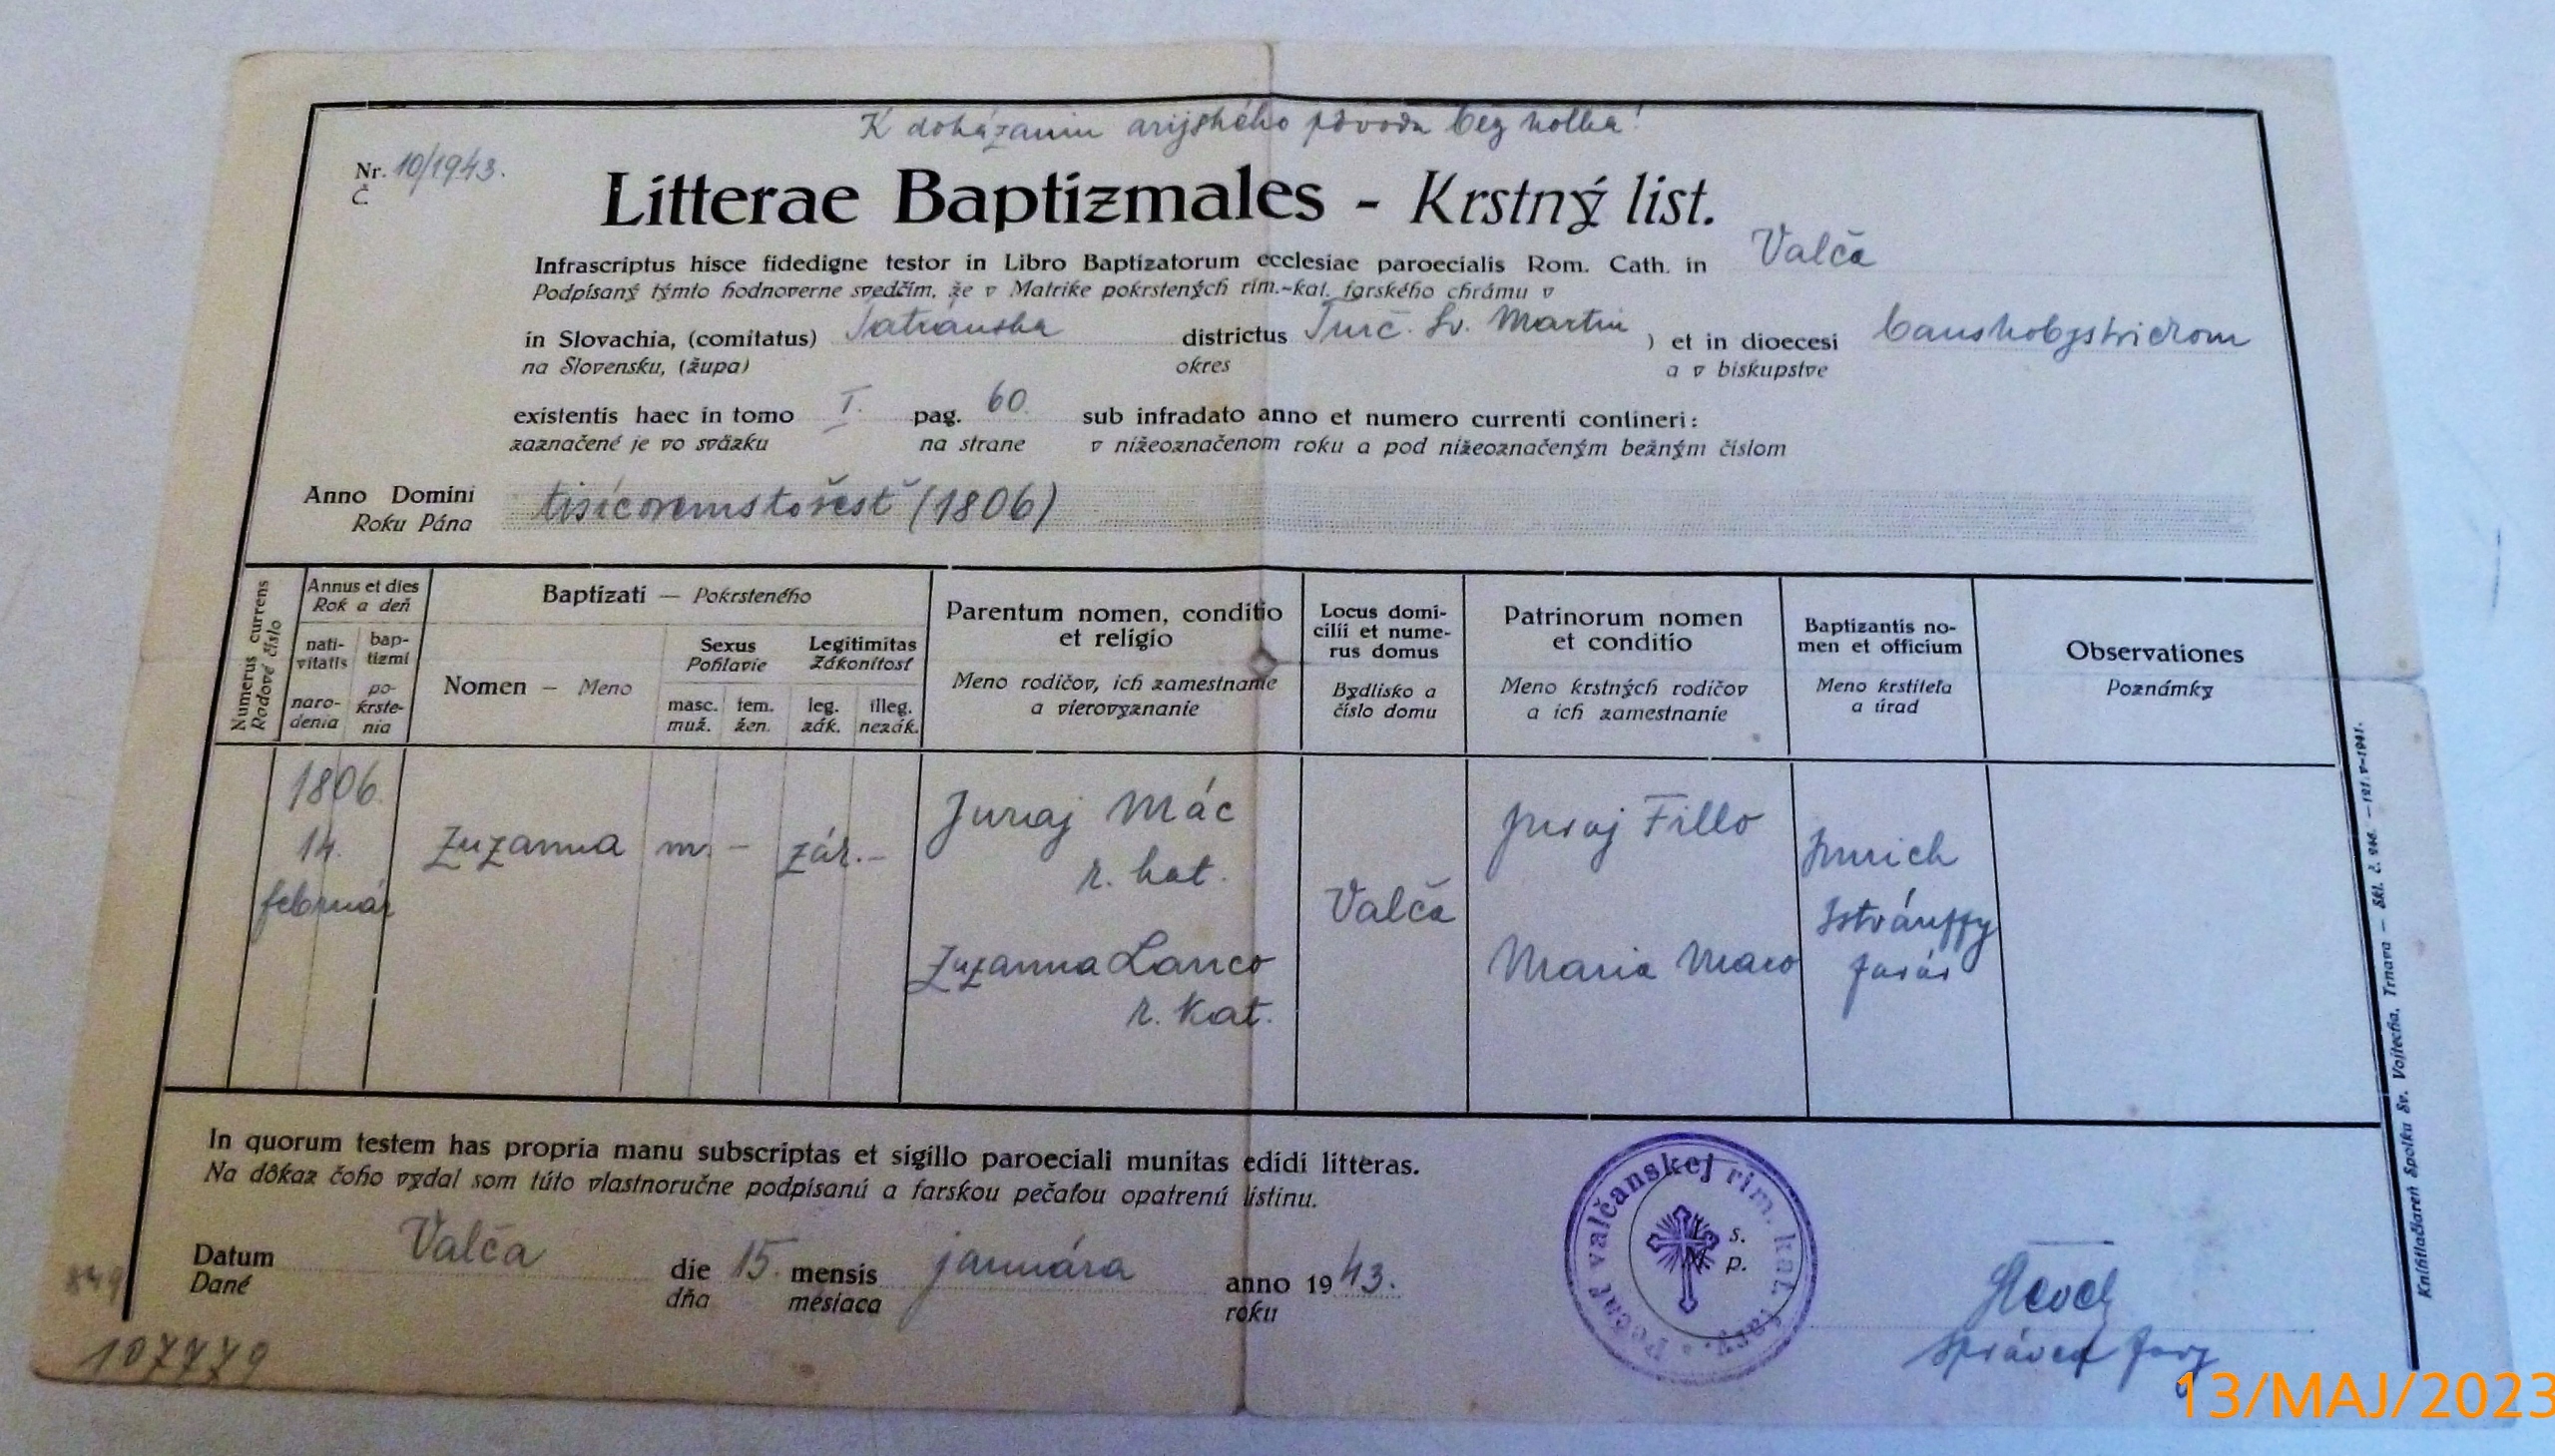 K dokázaniu arijského pôvodu bez kolku!
Nr. 10/1943.
Č
Litterae Baptizmales - Krstný list.
Infrascriptus hisce fidedigne testor in Libro Baptizatorum ecclesiae paroecialis Rom. Cath. in Valča
Podpísaný týmto hodnoverne svedčím, že v Matrike pokrstených rím.-kat. farského chrámu v
in Slovachia, (comitatus) Tatranska districtus Turč. Sv. Martin ) et in dioecesi banskobystrickom
na Slovensku, (župa) okres a v biskupstve
existentis haec in tomo I. pag. 60. sub infradato anno et numero currenti contineri:
zaznačené je vo sväzku na strane v nižeoznačenom roku a pod nižeoznačeným bežným číslom
Anno Domini tisícosemstošesť (1806)
Roku Pána
Numerus currens
Radové číslo
Annus et dies
Rok a deň
nati-
vitatis
naro-
denia
bap-
tizmi
po-
krste-
nia
Baptizati — Pokrsteného
Nomen — Meno
Sexus
Pohlavie
masc.
muž.
fem.
žen.
Legitimitas
Zákonitosť
leg.
zák.
illeg.
nezák.
Parentum nomen, conditio
et religio
Meno rodičov, ich zamestnanie
a vierovyznanie
Locus domi-
cilii et nume-
rus domus
Bydlisko a
číslo domu
Patrinorum nomen
et conditio
Meno krstných rodičov
a ich zamestnanie
Baptizantis no-
men et officium
Meno krstiteľa
a úrad
Observationes
Poznámky
1806.
14.
február
Zuzanna
m. -
zák. -
Juraj Mác
r. kat.
Zuzanna Lanco
r. kat.
Valča
Juraj Fillo
Maria Maco
Imrich
Istvánffy
farár
In quorum testem has propria manu subscriptas et sigillo paroeciali munitas edidi litteras.
Na dôkaz čoho vydal som túto vlastnoručne podpísanú a farskou pečaťou opatrenú listinu.
Datum Valča die 15. mensis januára anno 1943.
Dané dňa mesiaca roku
Pečať valčanskej rím. kat. fary.
L. s.
M. p.
správca fary
849
107779
Kníhtlačiareň Spolku Sv. Vojtecha, Trnava — Skl. č. —121.V-1941.
13/MAJ/2023